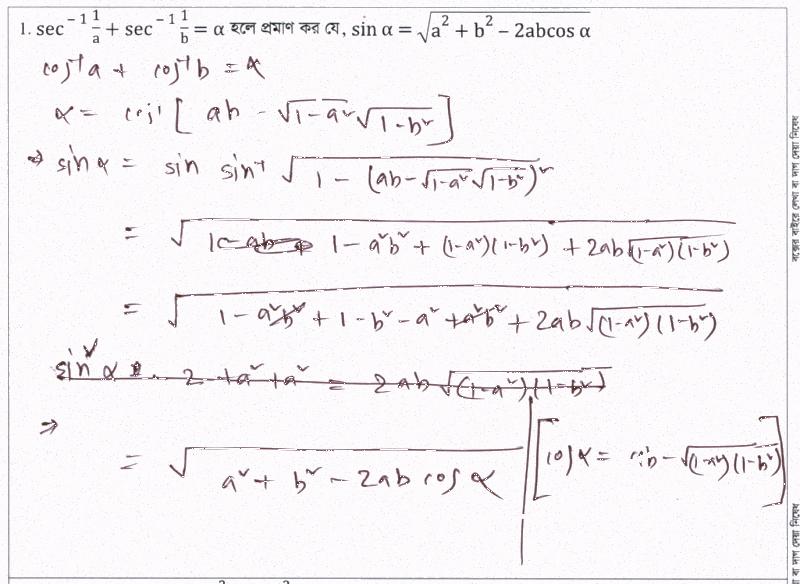 1. sec⁻¹ 1/a + sec⁻¹ 1/b = α হলে প্রমাণ কর যে, sin α = √(a² + b² − 2abcos α)
cos⁻¹a + cos⁻¹b = α
α = cos⁻¹[ab − √(1−a²)√(1−b²)]
⇒ sin α = sin sin⁻¹ √(1 − (ab − √(1−a²)√(1−b²))²)
= √(1 − a²b² + (1−a²)(1−b²) + 2ab√((1−a²)(1−b²)))
= √(1 − a²b² + 1 − b² − a² + a²b² + 2ab√((1−a²)(1−b²)))
sin²α = 2 + a² + a² = 2ab√((1−a²)(1−b²))
⇒
= √(a² + b² − 2ab cos α) [cos α = ab − √((1−a²)(1−b²))]
বক্সের বাইরে লেখা বা দাগ দেয়া নিষেধ
বা দাগ দেয়া নিষেধ